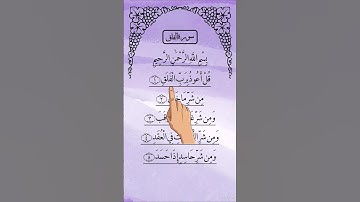 سورة الفلق
بِسْمِ اللَّهِ الرَّحْمَٰنِ الرَّحِيمِ
قُلْ أَعُوذُ بِرَبِّ الْفَلَقِ ١
مِن شَرِّ مَا ٢
وَمِن شَرِّ ٣
وَمِن شَرِّ فِي الْعُقَدِ ٤
وَمِن شَرِّ حَاسِدٍ إِذَا حَسَدَ ٥